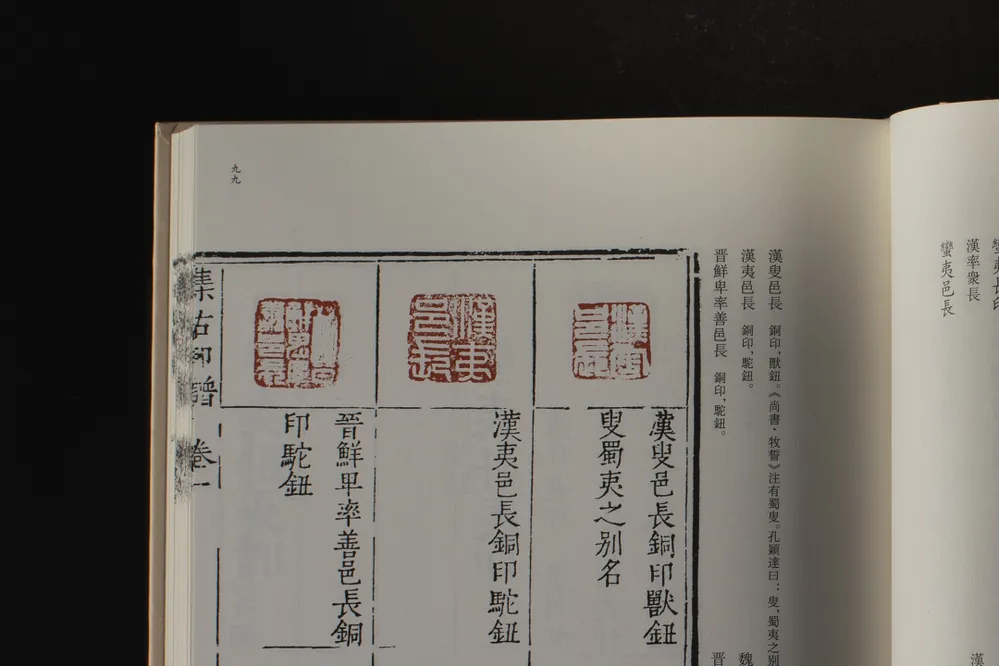 九九
漢叟邑長　銅印，獸鈕。《尚書·牧誓》注有蜀叟。孔穎達曰：叟，蜀夷之別
漢夷邑長　銅印，駝鈕。
晉鮮卑率善邑長　銅印，駝鈕。
漢叟邑長銅印獸鈕
叟蜀夷之别名
漢夷邑長
漢夷邑長銅印駝鈕
晉鮮卑率善邑長銅
印駝鈕
集古印譜 卷一
漢率衆長
蠻夷邑長
魏
晉
漢